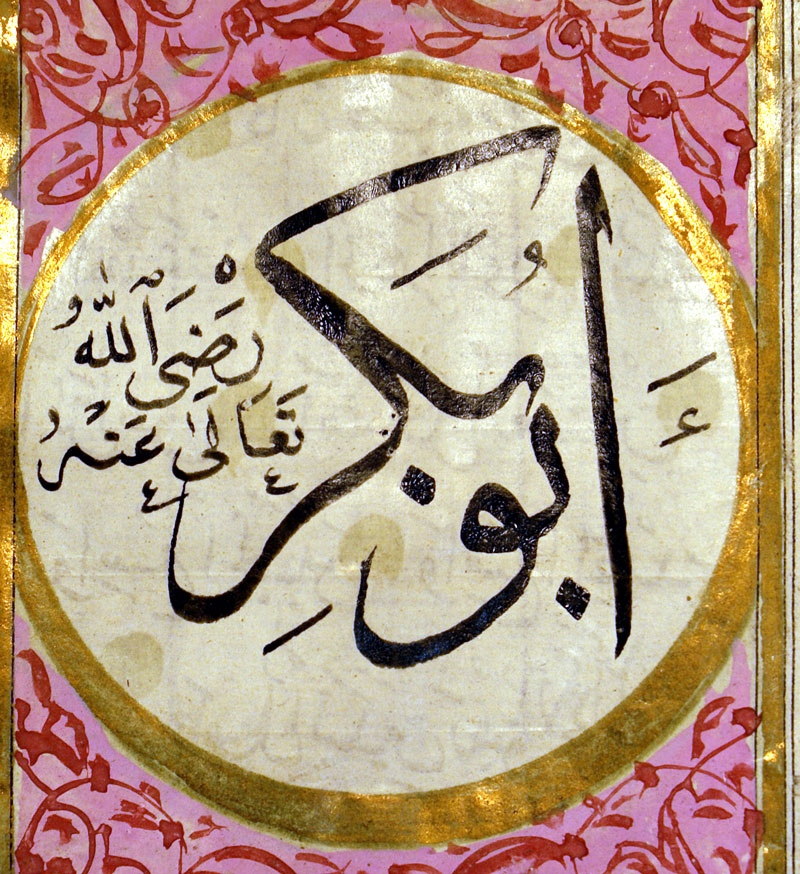 أَبُو بَكْرِ
رَضَى اللّٰهُ
تَعَالَى عَنْهُ